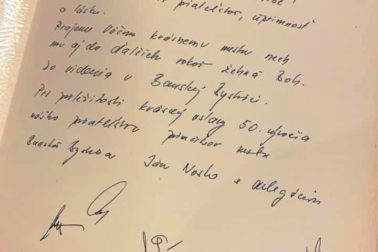 priateľstvo, úprimnosť
a lásku.
Prajeme Vášmu krásnemu mestu nech
mu aj do ďalších rokov žehná Boh.
Do videnia v Banskej Bystrici.
Pri príležitosti krásnej oslavy 50. výročia
nášho priateľstva primátor mesta
Banská Bystrica Ján Nosko s delegáciou